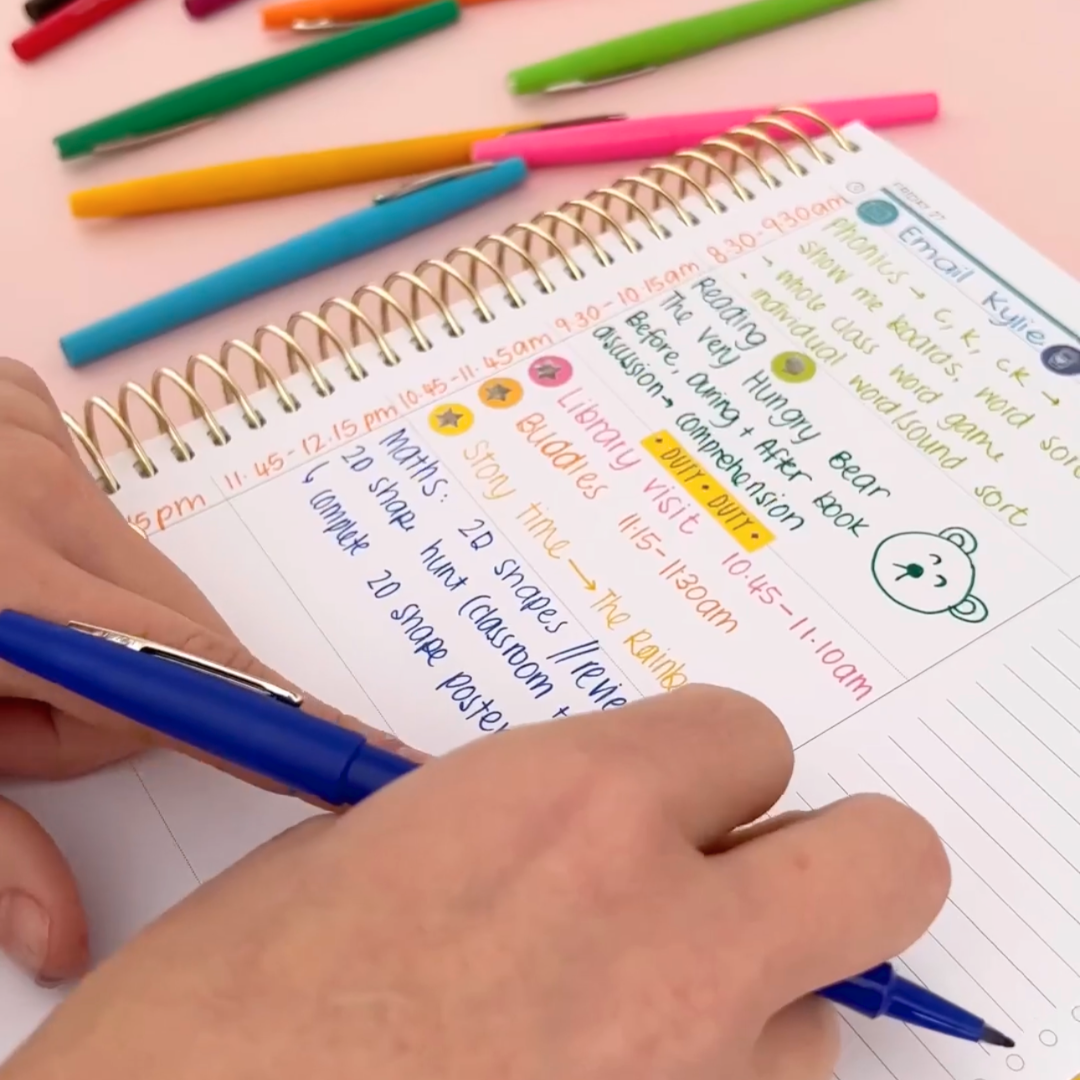 FRIDAY 27
Email Kylie
8.30-9.30am
Phonics → C, K, CK →
show me boards, word sort
whole class word game
individual word/sound sort
9.30-10.15am
Reading
The Very Hungry Bear
Before, during + After book
discussion → comprehension
• DUTY • DUTY •
10.45-11.45am
Library visit 10.45-11.10am
Buddies 11.15-11.30am
Story time → The
11.45-12.15pm
Maths: 2D shapes //
2D shape hunt (classroom +
↳ complete 2D shape poster